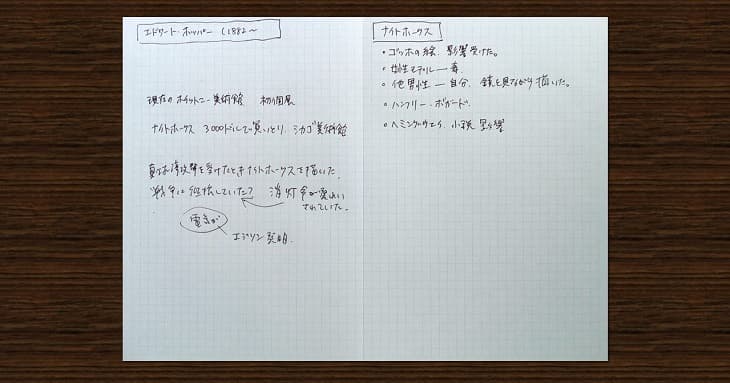 エドワード・ホッパー (1882〜
現在のホイットニー美術館 初の個展
ナイトホークス 3000ドルで買いとり、シカゴ美術館
真珠湾攻撃を受けたときナイトホークスを描いた。
戦争に抵抗していた? 消灯令が
されていた。
電気が
エジソン発明.
ナイトホークス
・ゴッホの絵. 影響受けた。
・女性モデル — 妻.
・他男性 — 自分. 鏡を見ながら描いた。
・ハンフリー・ボガード.
・ヘミングウェイ. 小説 影響